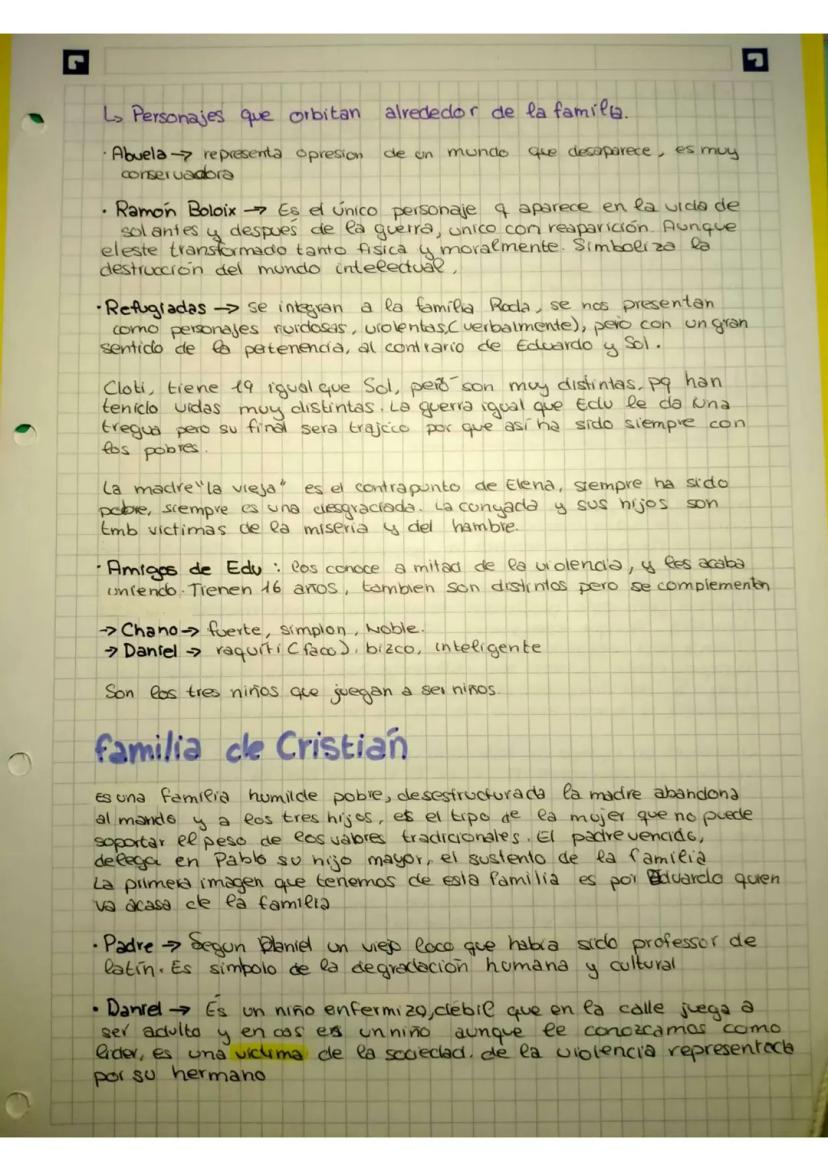 ↳ Personajes que orbitan alrededor de la familia.
· Abuela → representa opresion de un mundo que desaparece, es muy
conservadora
· Ramón Boloix → Es el único personaje q aparece en la vida de
sol antes y después de la guerra, unico con reaparición. Aunque
el este transformado tanto fisica y moralmente. Simboliza la
destrucción del mundo intelectual,
· Refugiadas → se integran a la familia Roda, se nos presentan
como personajes ruidosas, violentas (verbalmente), pero con un gran
sentido de la pertenencia, al contrario de Eduardo y Sol.
Cloti, tiene 19 igual que Sol, pero son muy distintas, pq han
tenido vidas muy distintas. La guerra igual que Edu le da una
tregua pero su final sera trajico por que así ha sido siempre con
los pobres.
La madre "la vieja" es el contrapunto de Elena, siempre ha sido
pobre, siempre es una desgraciada. La cunyada y sus hijos son
tmb victimas de la miseria y del hambre.
· Amigos de Edu : los conoce a mitad de la violencia, y les acaba
uniendo. Tienen 16 años, tambien son distintos pero se complementan
→ Chano → fuerte, simplon, Noble.
→ Daniel → raquíti (faco). bizco, inteligente
Son los tres niños que juegan a ser niños.
familia de Cristian
es una familia humilde pobre, desestructurada la madre abandona
al marido y a los tres hijos, es el tipo de la mujer que no puede
soportar el peso de los valores tradicionales. El padre vencido,
delega en Pablo su hijo mayor, el sustento de la familia
La primera imagen que tenemos de esta familia es por Eduardo quien
va acasa de la familia
· Padre → Segun Daniel un viejo loco que habia sido professor de
latín. Es simbolo de la degradación humana y cultural
· Daniel → Es un niño enfermizo, debil que en la calle juega a
ser adulto y en cas es un niño aunque le conozcamos como
lider, es una victima de la sociedad. de la violencia representada
por su hermano